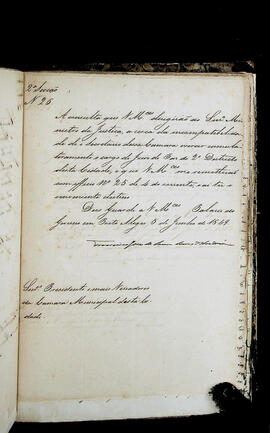 2ª Secção
N. 25
A consulta que V Mces dirigirão ao Senr Mi-
nistro da Justiça, a cerca da incompatibilida-
de do Secretario dessa Camara exercer cumula-
tivamente o cargo de Juiz de Paz do 2º Districto
desta Cidade, e que V Mces me remetterão
com officio Nº 25 de 4 do corrente, vai ter o
conveniente destino.
Deos Guarde a V Mces Palacio do
Governo em Porto Alegre 5 de Junho de 1849.
Senrs Presidente e mais Vereadores
da Camara Municipal desta Ci-
dade